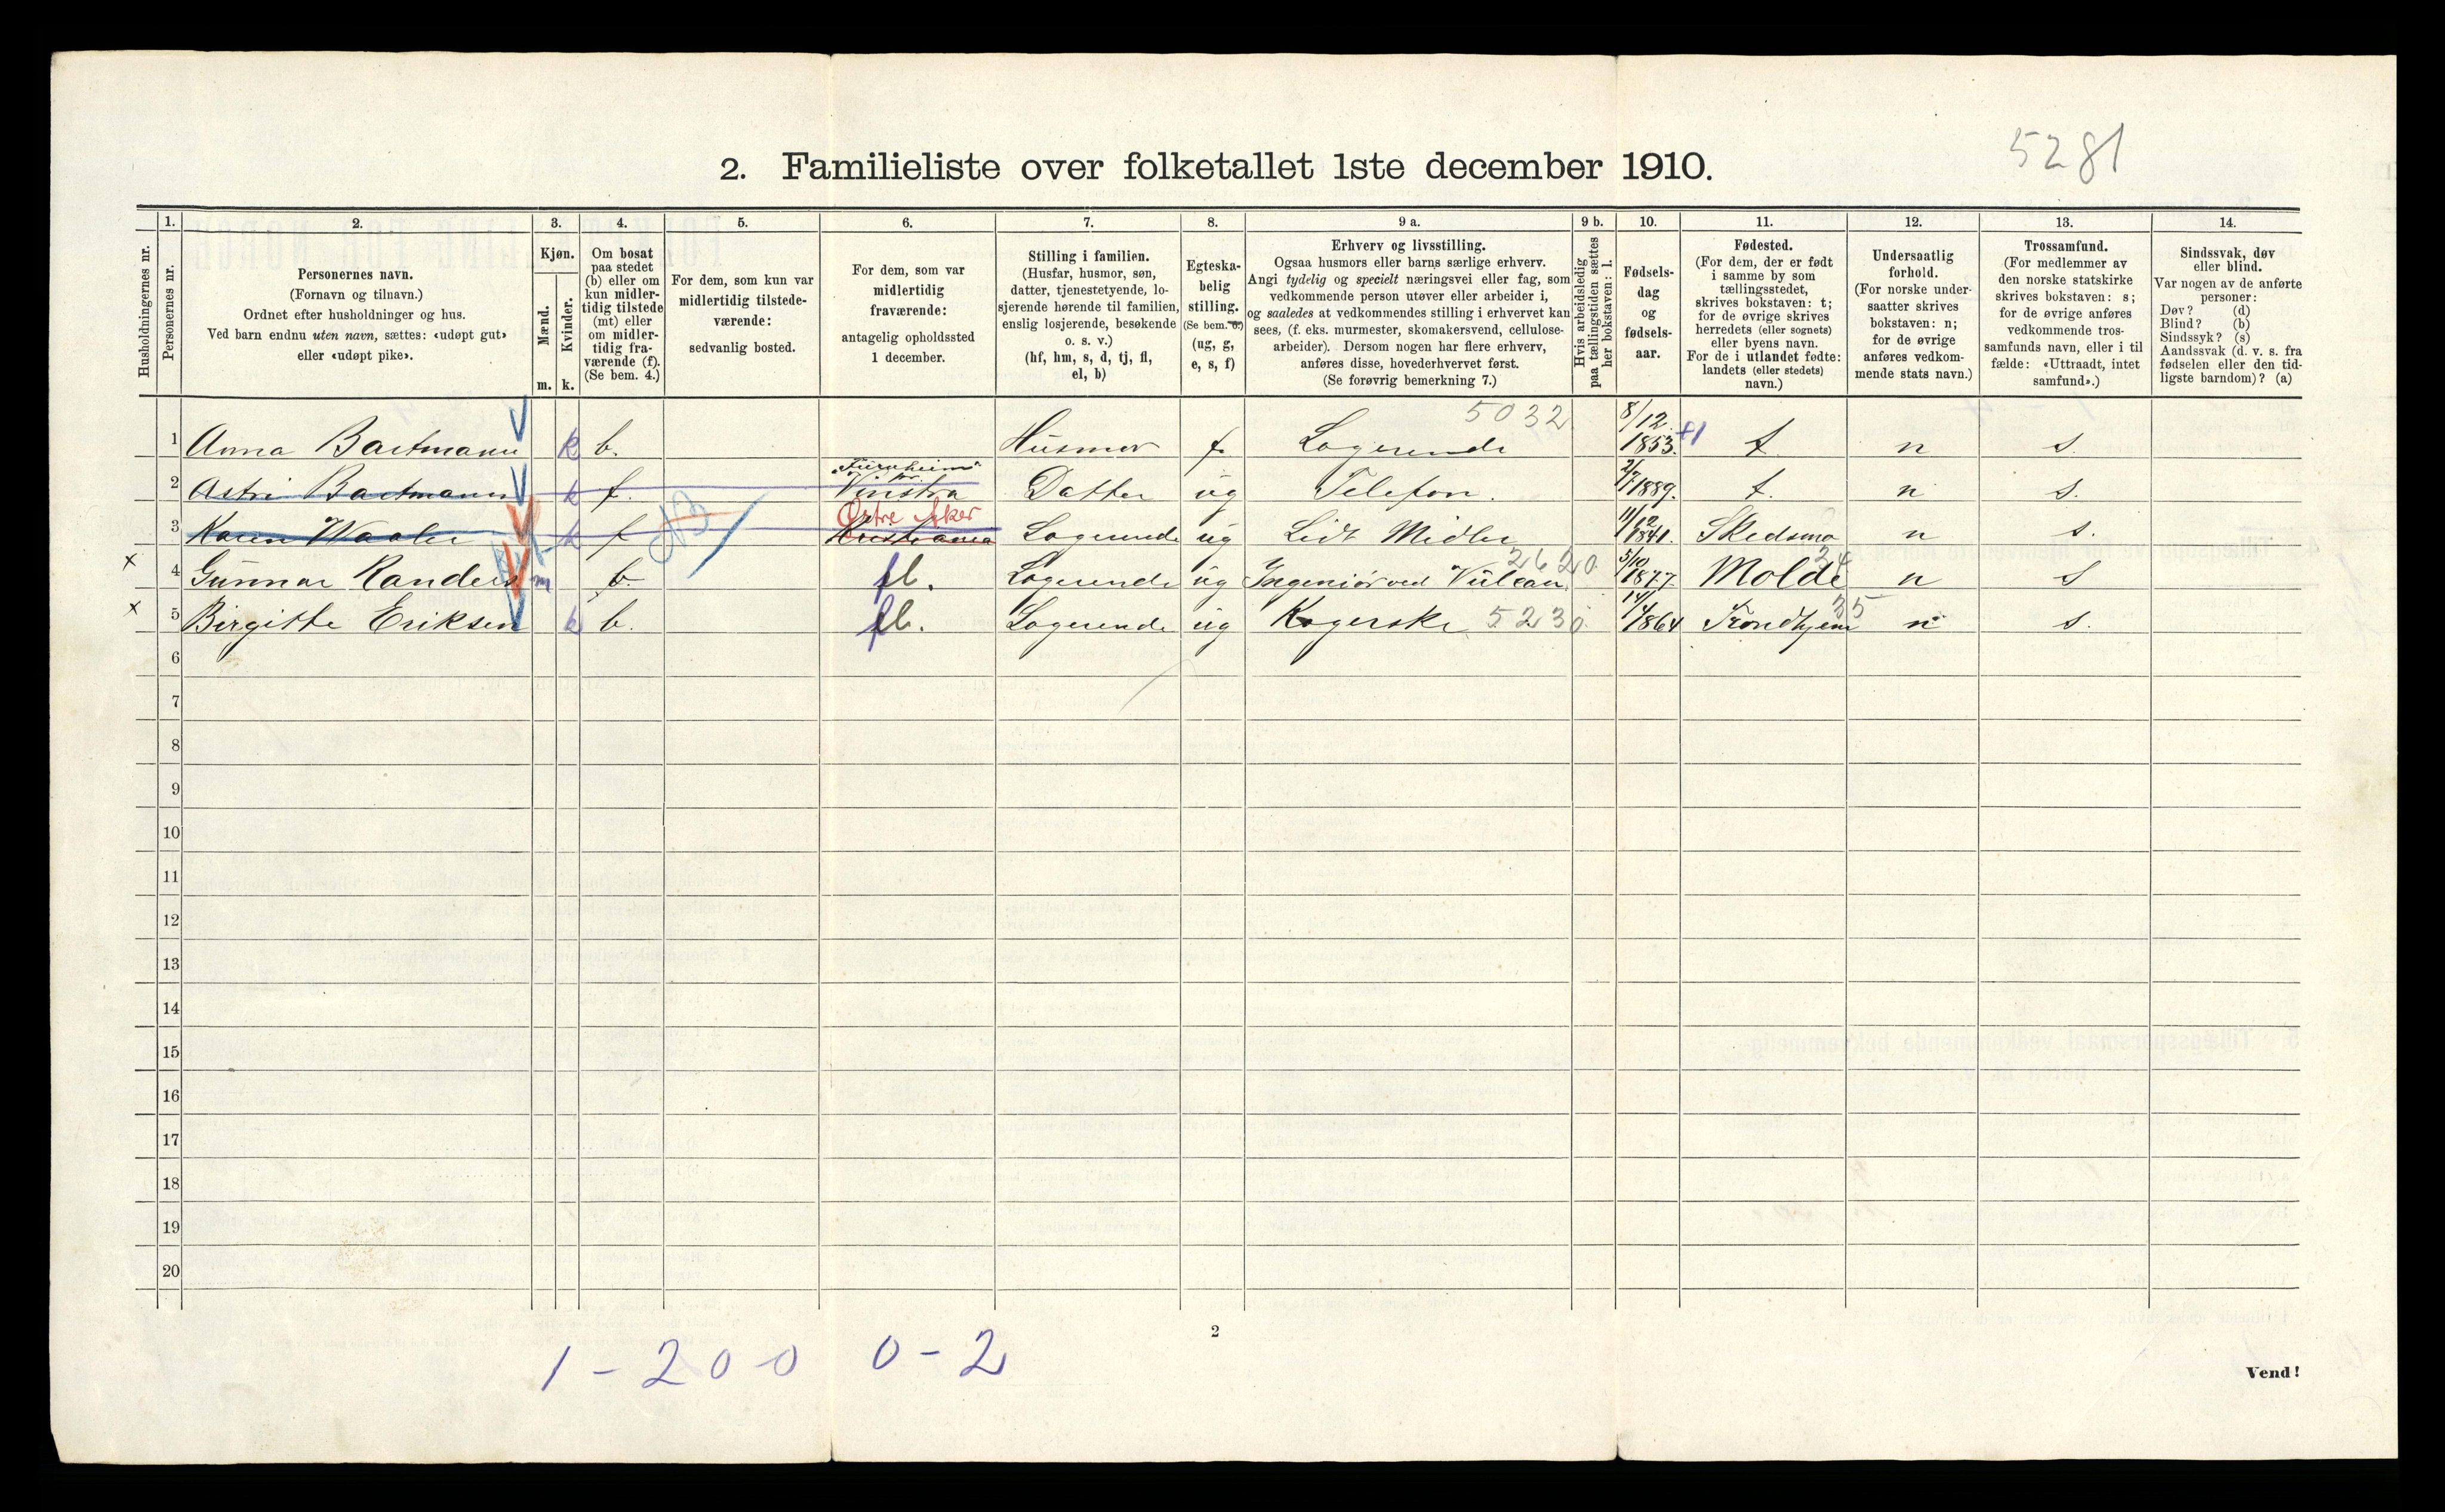 5281
2. Familieliste over folketallet 1ste december 1910.
Husholdningernes nr.
1.
Personernes nr.
2.
Personernes navn.
(Fornavn og tilnavn.)
Ordnet efter husholdninger og hus.
Ved barn endnu uten navn, sættes: «udøpt gut»
eller «udøpt pike».
3.
Kjøn.
Mænd.
Kvinder.
m. k.
4.
Om bosat
paa stedet
(b) eller om
kun midler-
tidig tilstede
(mt) eller
om midler-
tidig fra-
værende (f).
(Se bem. 4.)
5.
For dem, som kun var
midlertidig tilstede-
værende:
sedvanlig bosted.
6.
For dem, som var
midlertidig
fraværende:
antagelig opholdssted
1 december.
7.
Stilling i familien.
(Husfar, husmor, søn,
datter, tjenestetyende, lo-
sjerende hørende til familien,
enslig losjerende, besøkende
o. s. v.)
(hf, hm, s, d, tj, fl,
el, b)
8.
Egteska-
belig
stilling.
(Se bem. 6.)
(ug, g,
e, s, f)
9 a.
Erhverv og livsstilling.
Ogsaa husmors eller barns særlige erhverv.
Angi tydelig og specielt næringsvei eller fag, som
vedkommende person utøver eller arbeider i,
og saaledes at vedkommendes stilling i erhvervet kan
sees, (f. eks. murmester, skomakersvend, cellulose-
arbeider). Dersom nogen har flere erhverv,
anføres disse, hovederhvervet først.
(Se forøvrig bemerkning 7.)
9 b.
Hvis arbeidsledig
paa tællingstiden sættes
her bokstaven: l.
10.
Fødsels-
dag
og
fødsels-
aar.
11.
Fødested.
(For dem, der er født
i samme by som
tællingsstedet,
skrives bokstaven: t;
for de øvrige skrives
herredets (eller sognets)
eller byens navn.
For de i utlandet fødte:
landets (eller stedets)
navn.)
12.
Undersaatlig
forhold.
(For norske under-
saatter skrives
bokstaven: n;
for de øvrige
anføres vedkom-
mende stats navn.)
13.
Trossamfund.
(For medlemmer av
den norske statskirke
skrives bokstaven: s;
for de øvrige anføres
vedkommende tros-
samfunds navn, eller i til
fælde: «Uttraadt, intet
samfund».)
14.
Sindssvak, døv
eller blind.
Var nogen av de anførte
personer:
Døv? (d)
Blind? (b)
Sindssyk? (s)
Aandssvak (d. v. s. fra
fødselen eller den tid-
ligste barndom)? (a)
1 Anna Bartmann k b. Husmor f. Logerende 5032 8/12 1853. t n s.
2 Astri Bartmann k f. Vinstra Datter ug Telefon. 2/7 1889. t. n s.
3 Karen Waaler k f Østre Aker Kristiania Logerende ug Lidt Midler 11/12 1841. Skedsmo n s.
x 4 Gunnar Randers m b. fl. Logerende ug Ingeniør ved Vulcan 2620 5/10 1877. Molde n s
x 5 Birgitte Eriksen k b. fl. Logerende ug Kogerske 5230 14/1 1864 Trondhjem 35 n s.
6
7
8
9
10
11
12
13
14
15
16
17
18
19
20
2
1 - 2 0 0 0 - 2
Vend!